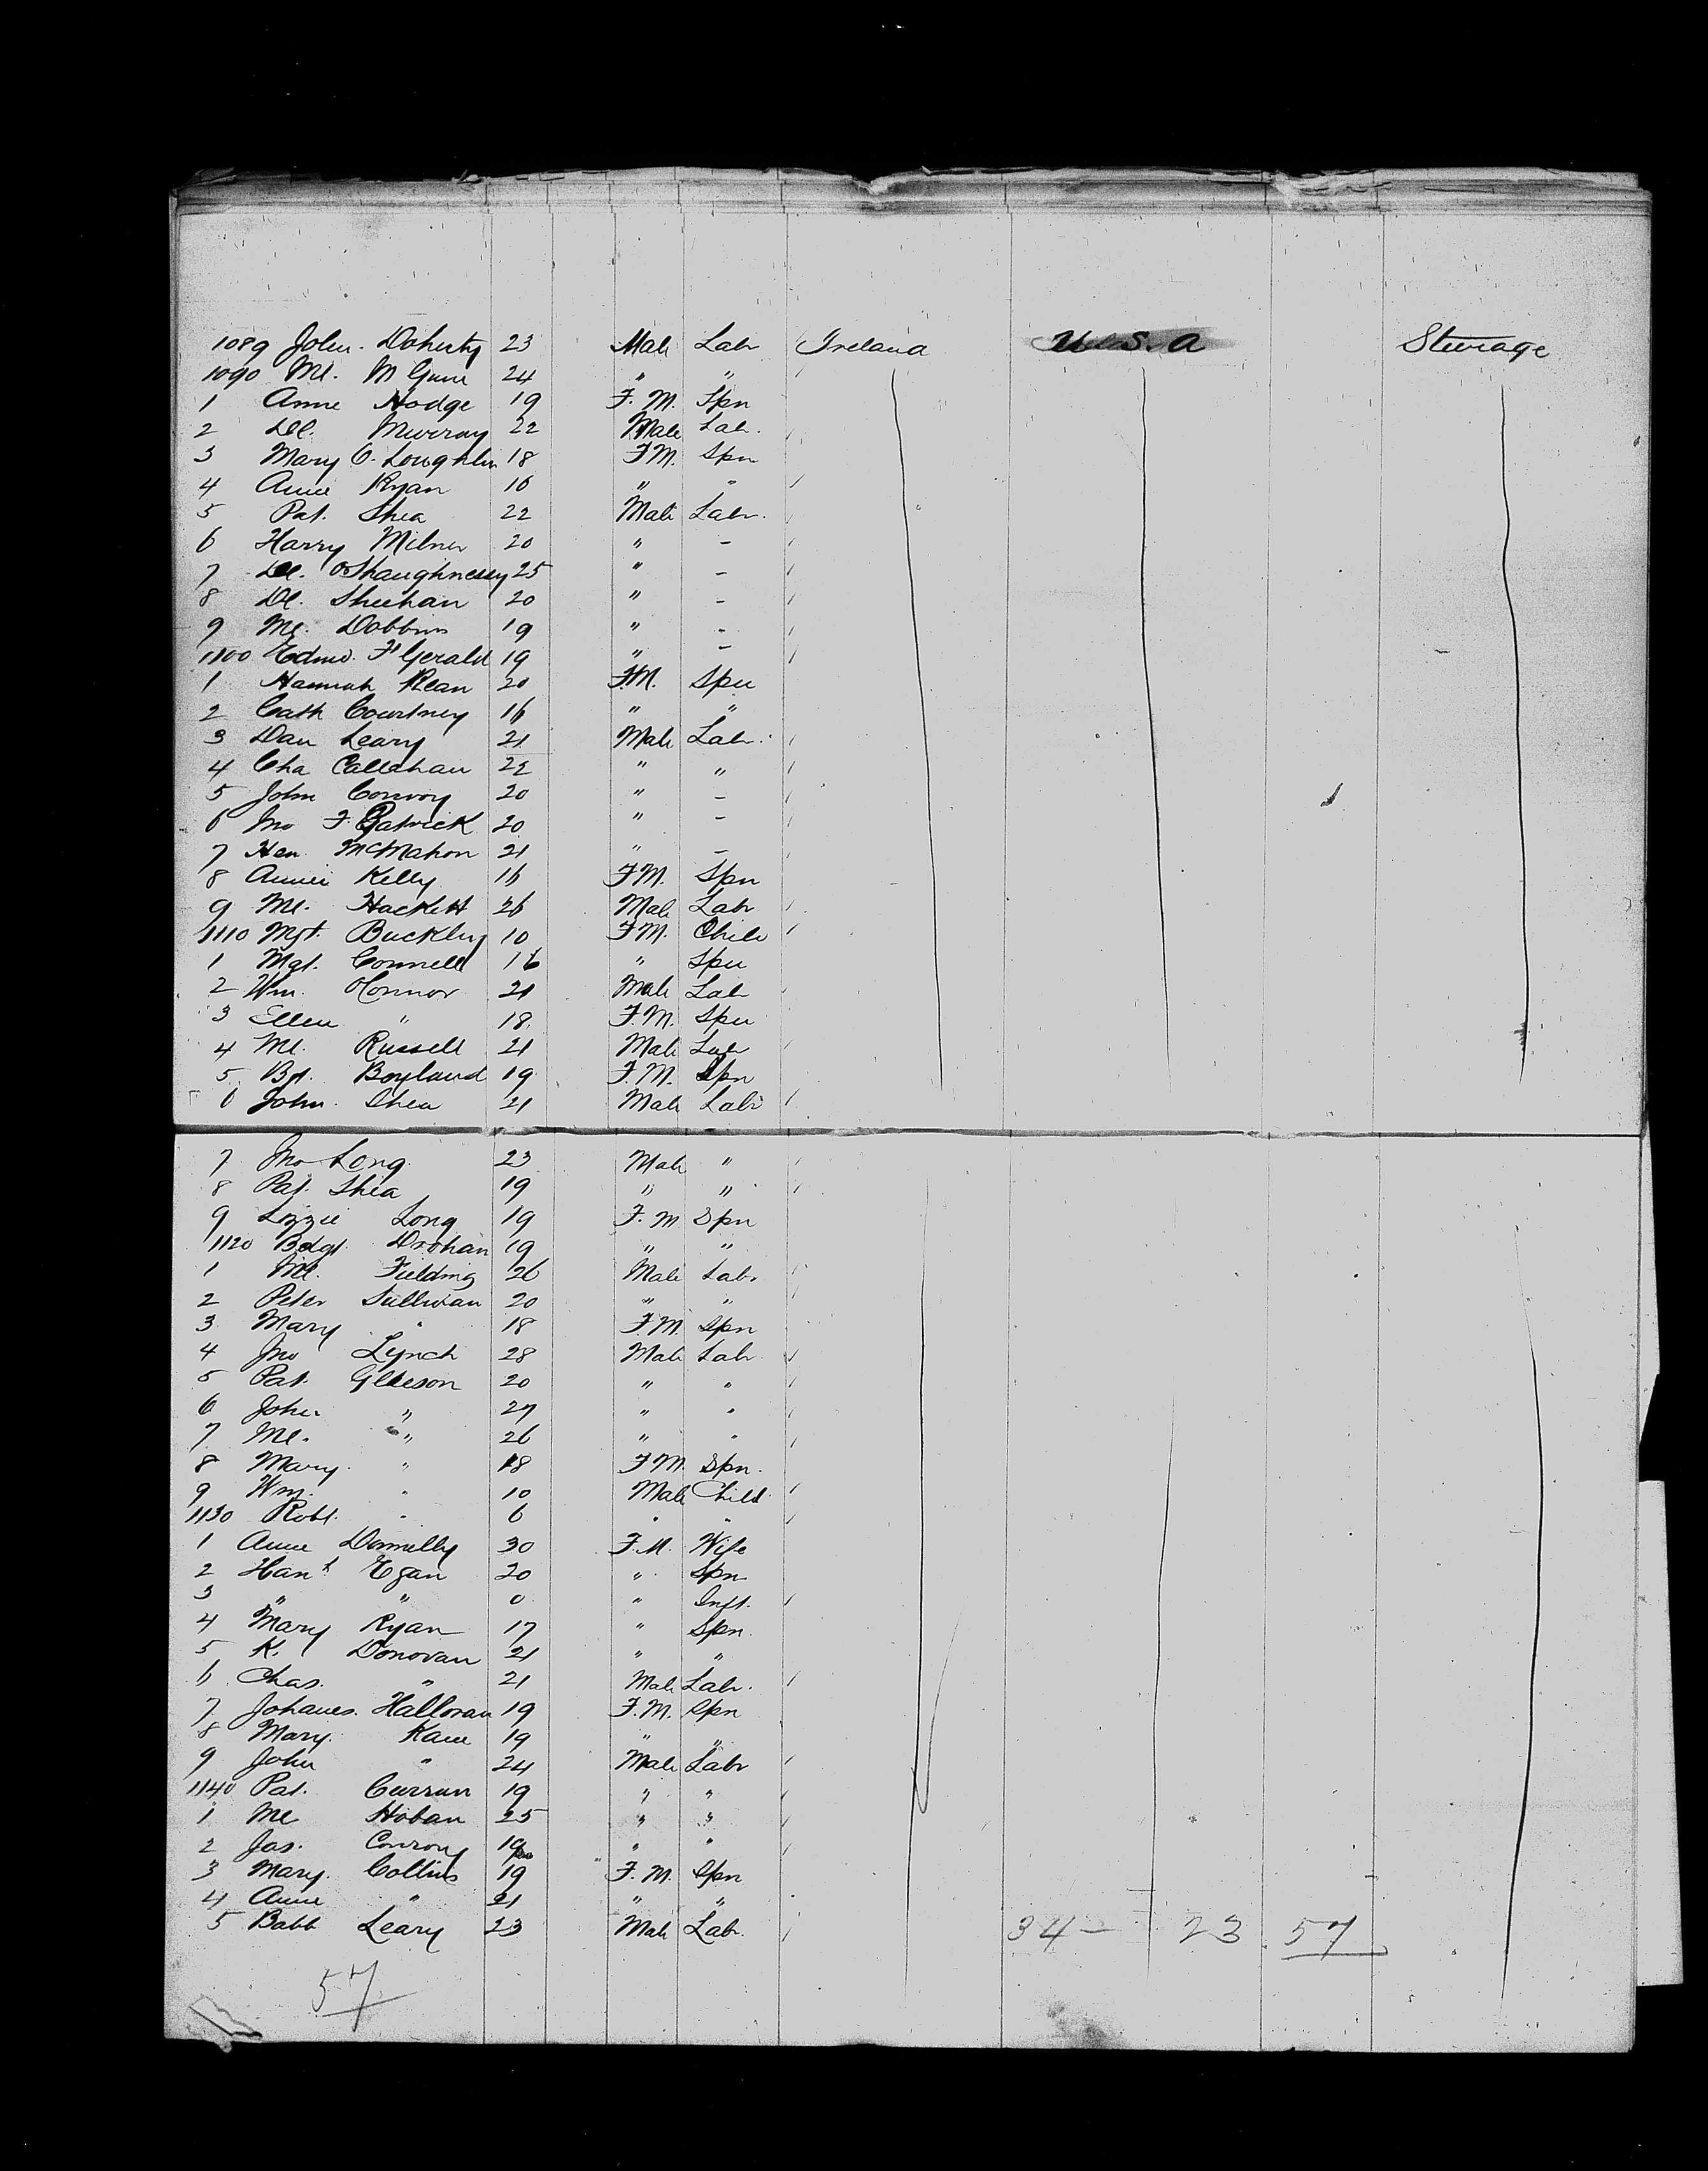 1089 John Doherty 23 Male Labr Ireland U.S.A Steerage
1090 Ml. 24 " "
1 Anne Hodge 19 F.M. Spn
2 Dl. Murray 22 Male Labr.
3 Mary O'Loughlin 18 F.M. Spn
4 Annie Ryan 16 " "
5 Pat. Shea 22 Male Labr.
6 Harry Milner 20 " -
7 Dl. O'Shaughnessy 25 " -
8 Dl. Sheehan 20 " -
9 Ml. Dobbins 19 " -
1100 Edmd. FtGerald 19 " -
1 Hannah 20 F.M. Spn
2 Cath Courtney 16 " "
3 Dan Leary 21 Male Labr.
4 Cha Callahan 22 " "
5 John Conroy 20 " -
6 Jno F. Patrick 20 " -
7 Hen McMahon 21 " -
8 Annie Kelly 16 F.M. Spn
9 Ml. Hackett 26 Male Labr
1110 Mgt. Buckley 10 F.M. Child
1 Mgt. Connell 16 " Spn
2 Wm. OConnor 21 Male Labr
3 Ellen " 18 F.M. Spn
4 Ml. Russell 21 Male Labr
5 Bgt. Boyland 19 F.M. Spn
6 John Shea 21 Male Labr
7 Jno Long 23 Male "
8 Pat. Shea 19 " "
9 Lizzie Long 19 F.M Spn
1120 Bdgt. Drohan 19 " "
1 Ml. Fielding 26 Male Labr
2 Peter Sullivan 20 " "
3 Mary " 18 F.M. Spn
4 Jno Lynch 28 Male Labr
5 Pat. Gleeson 20 " "
6 John " 27 " "
7 Ml. " 26 " "
8 Mary " 18 F.M. Spn.
9 Wm. " 10 Male Child
1130 Robt. " 6 " "
1 Anne Donnelly 30 F.M. Wife
2 Hanh Egan 20 " Spn
3 " " 0 " Inft.
4 Mary Ryan 17 " Spn.
5 K. Donovan 21 " "
6 Chas. " 21 Male Labr.
7 Halloran 19 F.M. Spn
8 Mary Kane 19 " "
9 John " 24 Male Labr
1140 Pat. Curran 19 " "
1 Ml Hoban 25 " "
2 Jas. Conroy 19 " "
3 Mary Collins 19 F.M. Spn
4 Anne " 21 " "
5 Babt Leary 23 Male Labr.
34 - 23 57
57